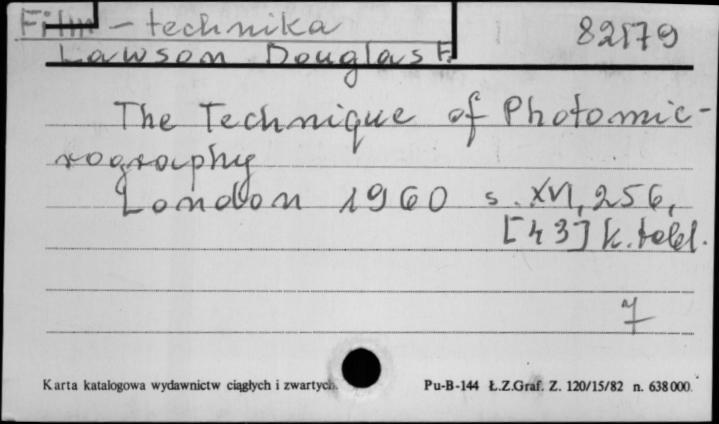 Film - technika 82179
Lawson Douglas F.
The Technique of Photomic-
rography
London 1960 s. XVI, 256,
[43] k. tabl.
7
Karta katalogowa wydawnictw ciągłych i zwartych. Pu-B-144 Ł.Z.Graf. Z. 120/15/82 n. 638 000.